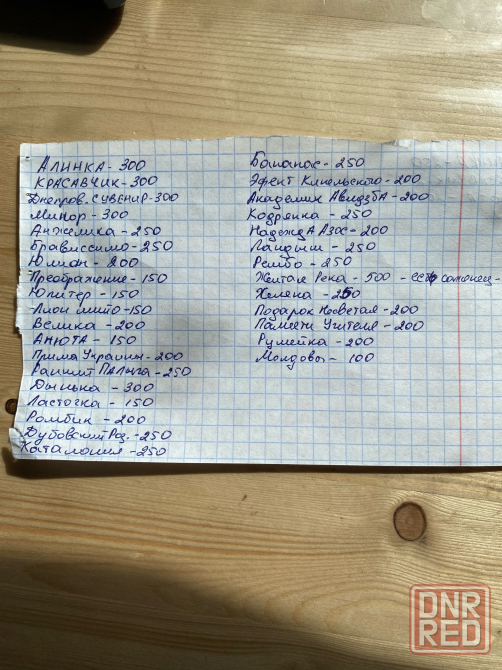 АЛИНКА - 300
КРАСАВЧИК - 300
Днепров. СУВЕНИР - 300
Минор - 300
Анжелика - 250
Брависсимо - 250
Юлиан - 200
Преображение - 150
Юпитер - 150
-150
Велика - 200
АНЮТА - 150
Прима Украины - 200
ПАЛЫГА - 250
Дынька - 300
Ласточка - 150
Ромбик - 200
Дубовский Роз. - 250
Каталония - 250
Бананас - 250
Эфект Кинельского - 200
Академик Авидзба - 200
Кодрянка - 250
НАДЕЖДА АЗОС - 200
Ландыш - 250
Рембо - 250
Желтая Река - 500 - есть саженец -
Хелена - 250
Подарок Несветая - 200
Памяти Учителя - 200
Румейка - 200
Молдовы - 100
DNR
RED